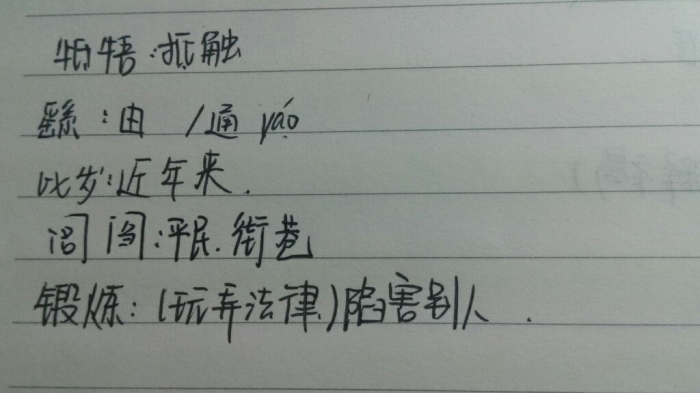 牴牾:抵触
繇:由 /通 yáo
比岁:近年来.
闾阎:平民.街巷
锻炼:(玩弄法律)陷害别人.